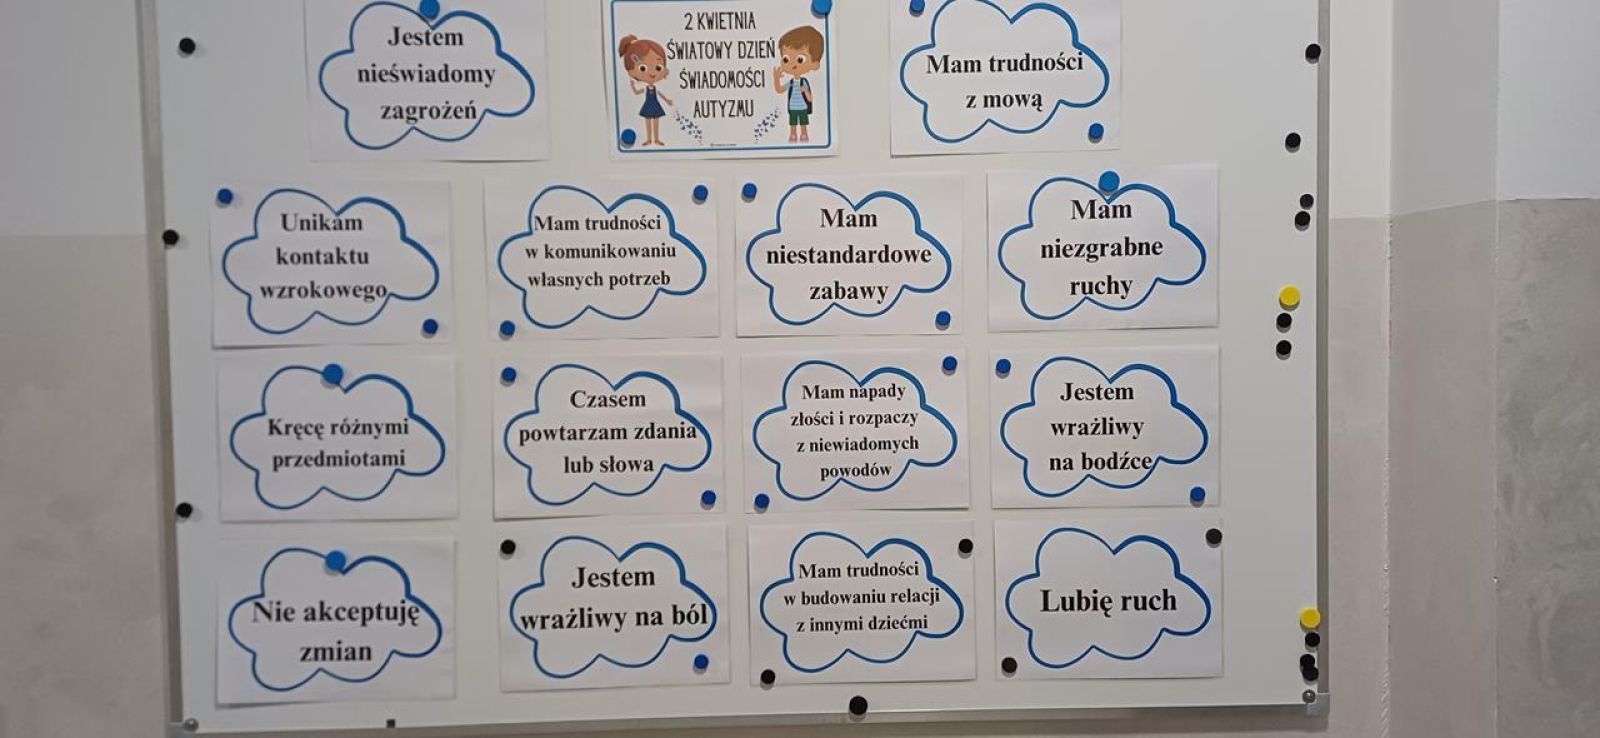 Jestem
nieświadomy
zagrożeń
2 KWIETNIA
ŚWIATOWY DZIEŃ
ŚWIADOMOŚCI
AUTYZMU
Mam trudności
z mową
Unikam
kontaktu
wzrokowego
Mam trudności
w komunikowaniu
własnych potrzeb
Mam
niestandardowe
zabawy
Mam
niezgrabne
ruchy
Kręcę różnymi
przedmiotami
Czasem
powtarzam zdania
lub słowa
Mam napady
złości i rozpaczy
z niewiadomych
powodów
Jestem
wrażliwy
na bodźce
Nie akceptuję
zmian
Jestem
wrażliwy na ból
Mam trudności
w budowaniu relacji
z innymi dziećmi
Lubię ruch